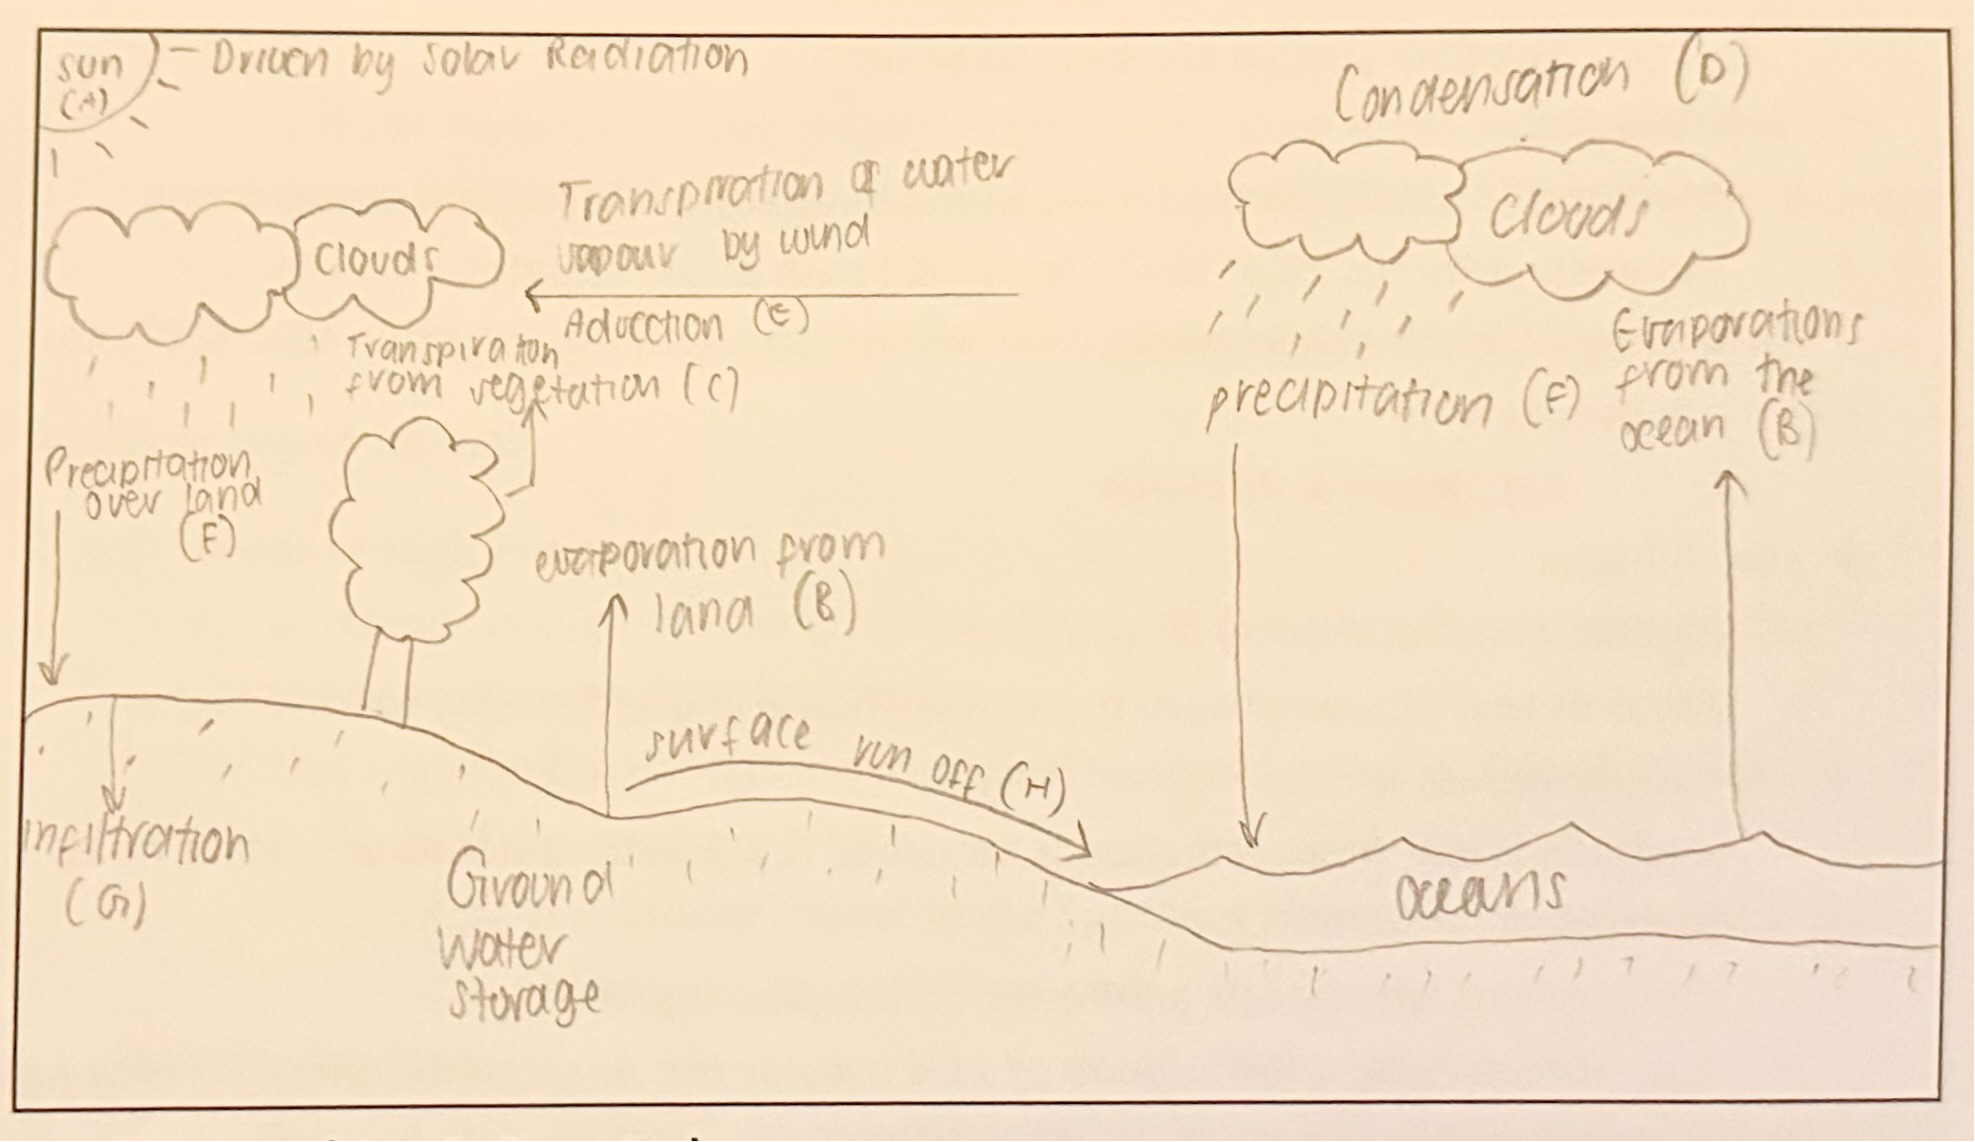 sun
(A)
- Driven by Solar Radiation
Condensation (D)
Transpiration of water
vapour by wind
Clouds
Clouds
Aducction (E)
Transpiration
from vegetation (C)
Evaporations
from the
ocean (B)
precipitation (F)
Precipitation
over land
(F)
evaporation from
land (B)
surface run off (H)
infiltration
(G)
Ground
Water
storage
oceans